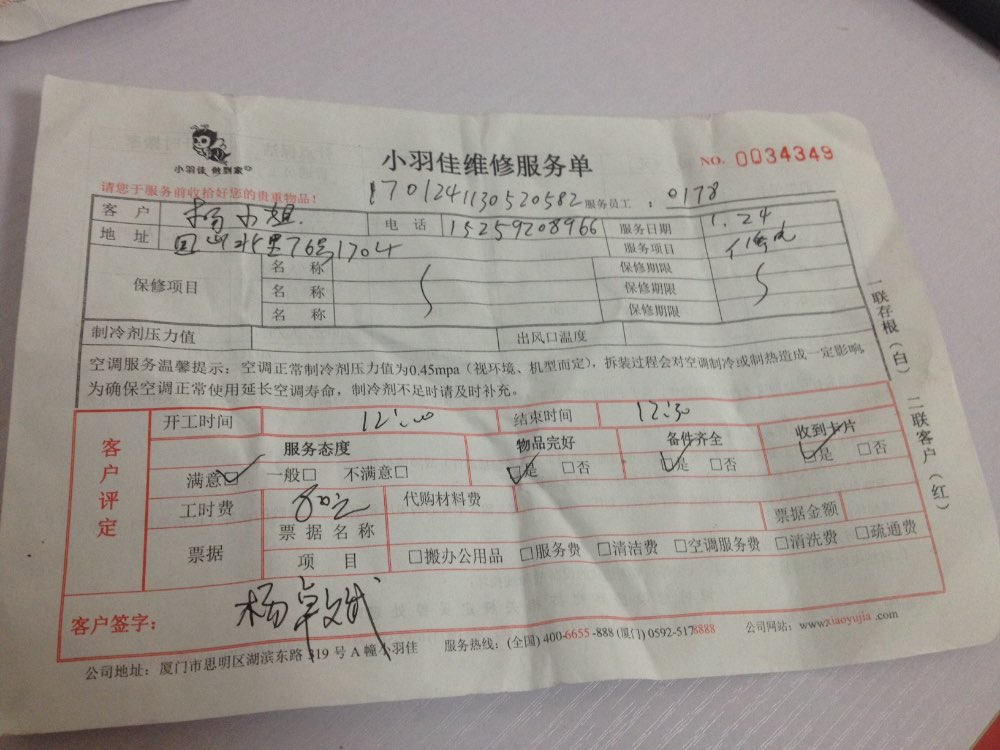 小羽佳 做到家
小羽佳维修服务单
NO. 0034349
请您于服务前收拾好您的贵重物品！
1701241130520582 服务员工： 0178
客户 杨小姐 电话 15259208966 服务日期 1.24
地址 76号1704 服务项目
保修项目 名称 保修期限
名称 保修期限
名称 保修期限
制冷剂压力值 出风口温度
空调服务温馨提示：空调正常制冷剂压力值为0.45mpa（视环境、机型而定），拆装过程会对空调制冷或制热造成一定影响，
为确保空调正常使用延长空调寿命，制冷剂不足时请及时补充。
一联存根（白） 二联客户（红）
客户评定
开工时间 12:00 结束时间 12:30
服务态度 物品完好 备件齐全 收到卡片
满意☑ 一般□ 不满意□ ☑是 □否 ☑是 □否 ☑是 □否
工时费 80元 代购材料费
票据 票据名称 票据金额
项目 □搬办公用品 □服务费 □清洁费 □空调服务费 □清洗费 □疏通费
客户签字： 杨卓斌
公司地址：厦门市思明区湖滨东路 319 号 A 幢小羽佳 服务热线：(全国) 400-6655-888 (厦门) 0592-5178888 公司网站：www.xiaoyujia.com